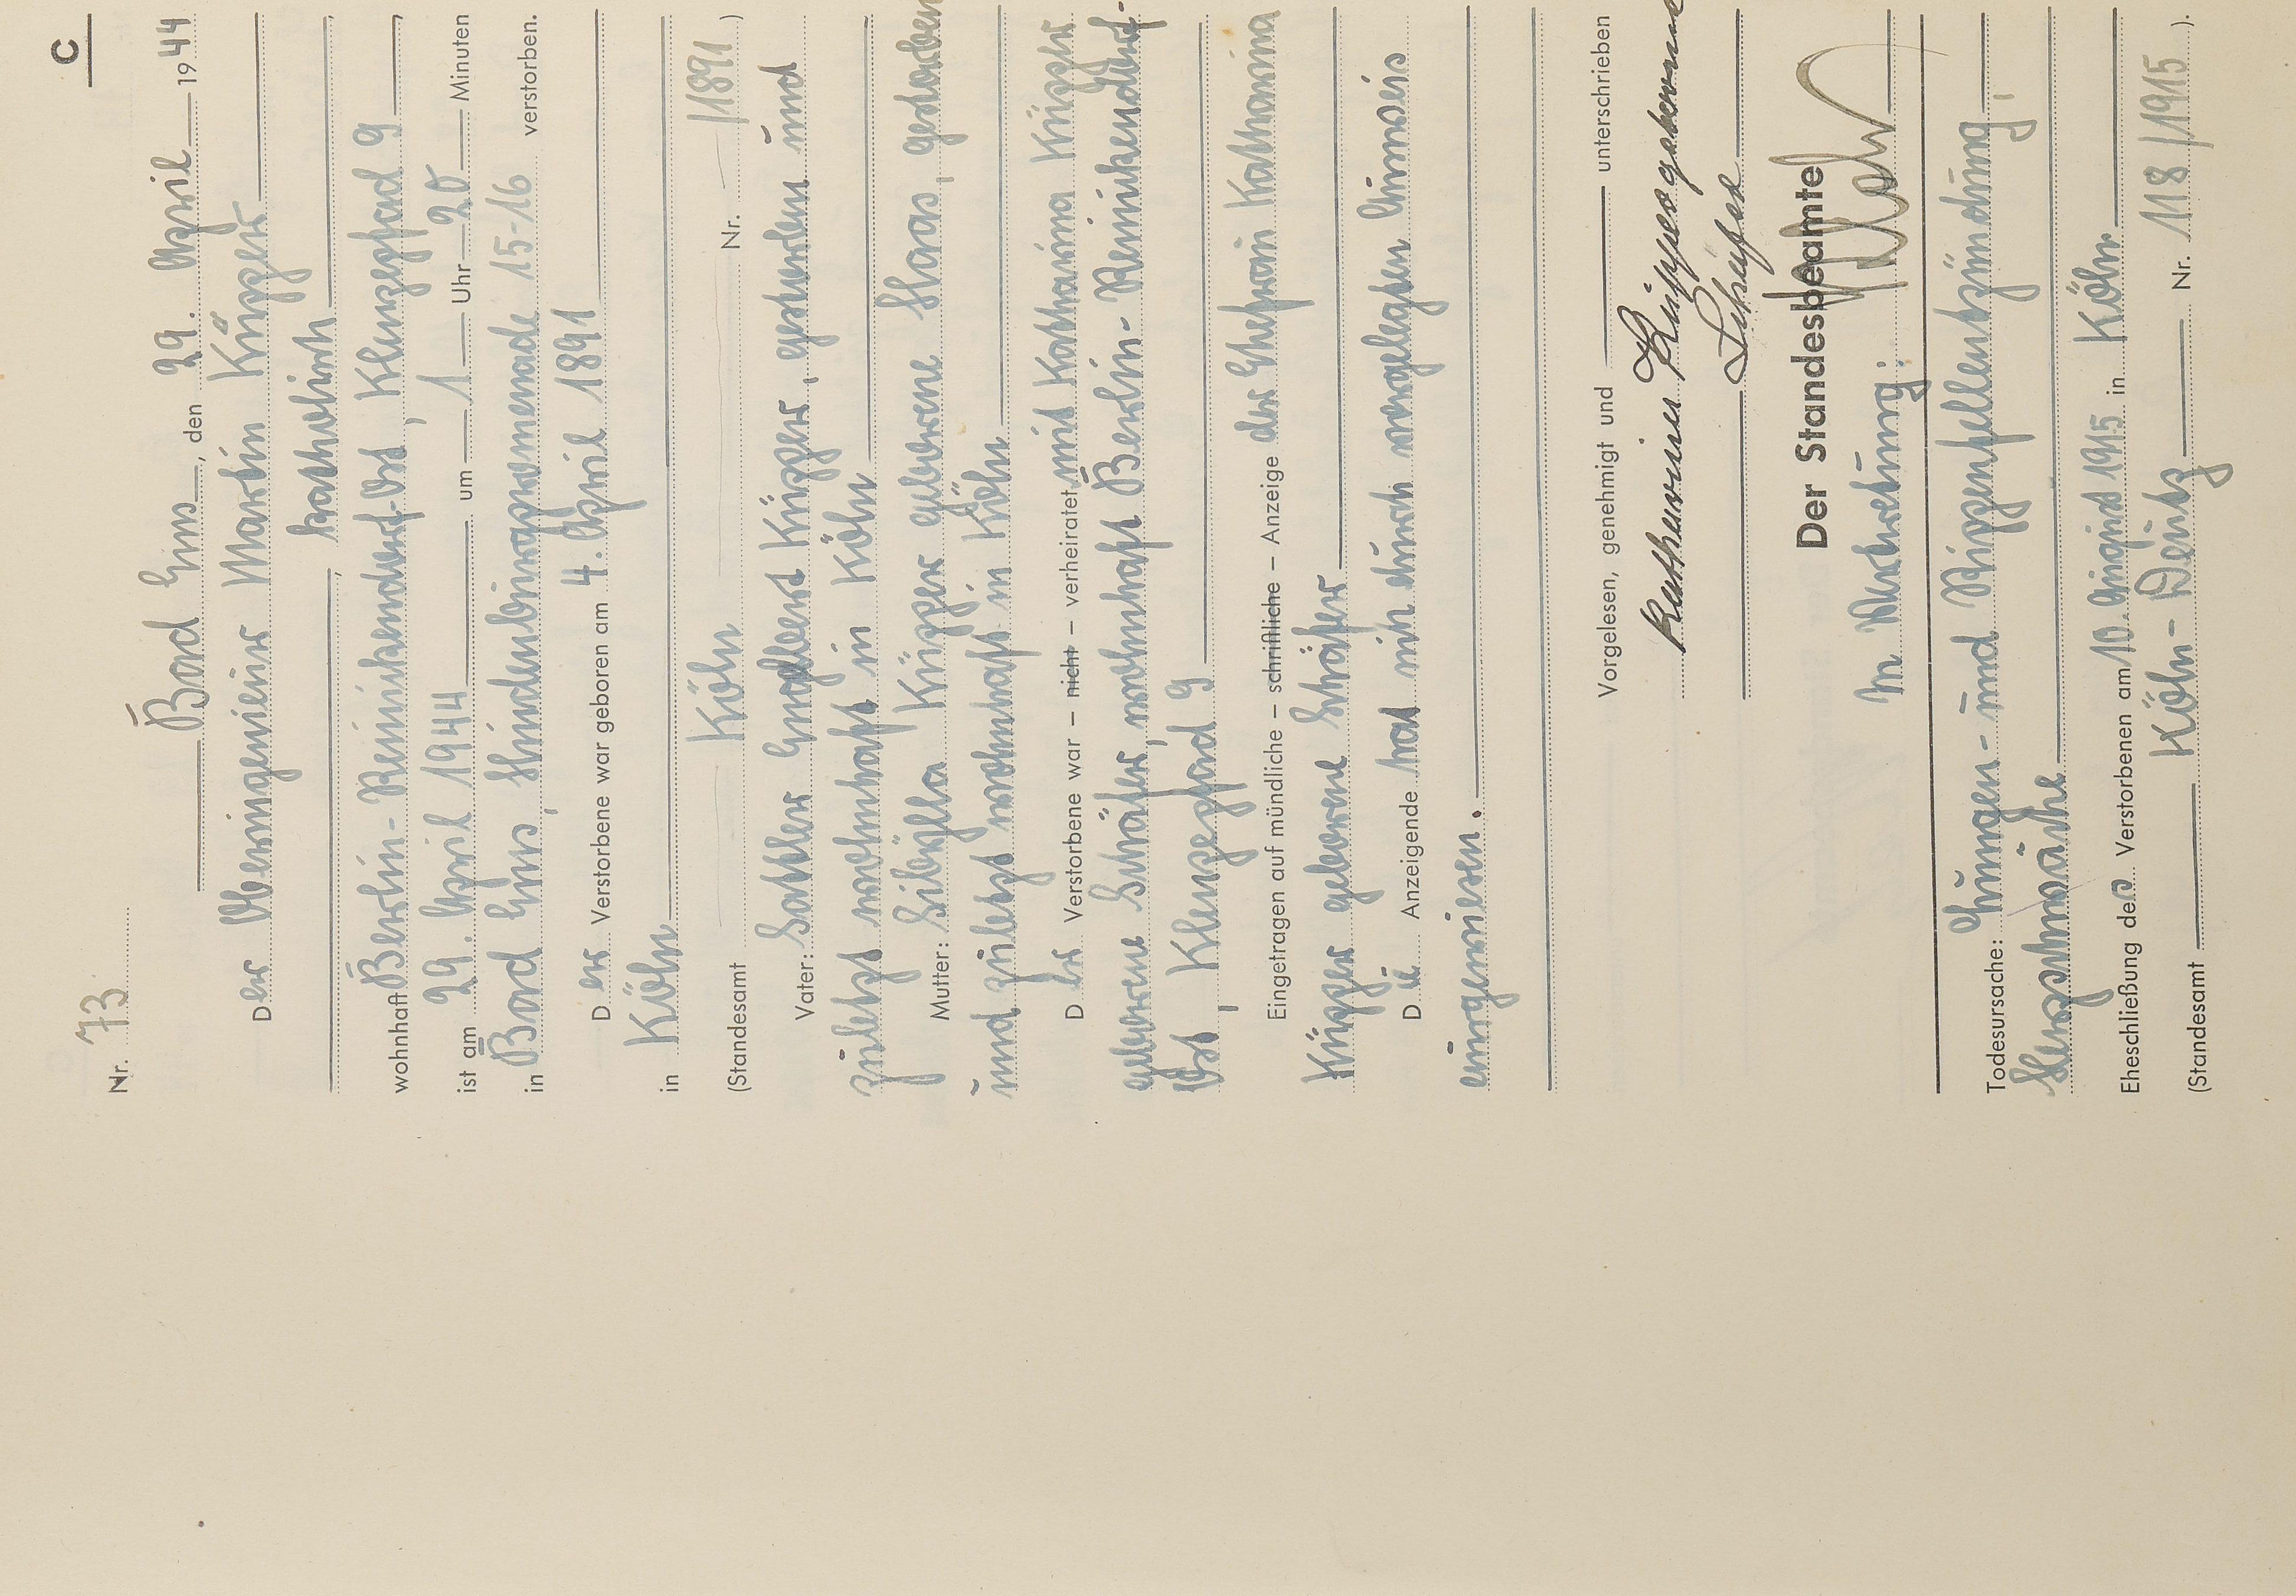 C
Nr. 73
Bad Ems, den 29. April 1944
Der Oberingenieur Martin Küpper
, katholisch,
wohnhaft Berlin-Reinickendorf-Ost, Klenzepfad 9,
ist am 29. April 1944 um 1 Uhr 20 Minuten
in Bad Ems, Hindenburgpromenade 15-16 verstorben.
Der Verstorbene war geboren am 4. April 1891
in Köln
(Standesamt Köln Nr. /1891)
Vater: Sattler Engelbert Küpper, gestorben und
zuletzt wohnhaft in Köln
Mutter: Sibylla Küpper geborene Haas, gestorben
und zuletzt wohnhaft in Köln
Der Verstorbene war – nicht – verheiratet mit Katharina Küpper
geborene Schäfer, wohnhaft Berlin-Reinickendorf-
Ost, Klenzepfad 9
Eingetragen auf mündliche – schriftliche – Anzeige der Ehefrau Katharina
Küpper geborene Schäfer
Die Anzeigende hat sich durch vorgelegten Ausweis
ausgewiesen.
Vorgelesen, genehmigt und unterschrieben
Katharina Küpper geborene
Schäfer
Der Standesbeamte
In Vertretung:
Todesursache: Lungen- und Rippenfellentzündung,
Herzschwäche
Eheschließung des Verstorbenen am 10. August 1915 in Köln
(Standesamt Köln-Deutz Nr. 118/1915).